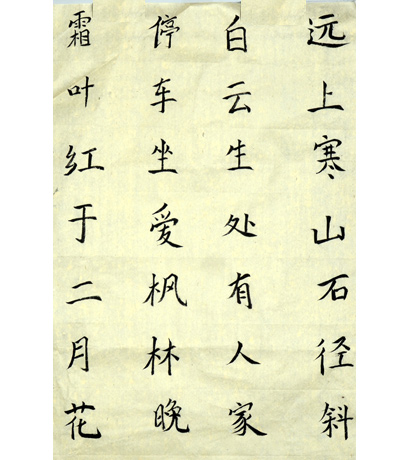 远上寒山石径斜
白云生处有人家
停车坐爱枫林晚
霜叶红于二月花